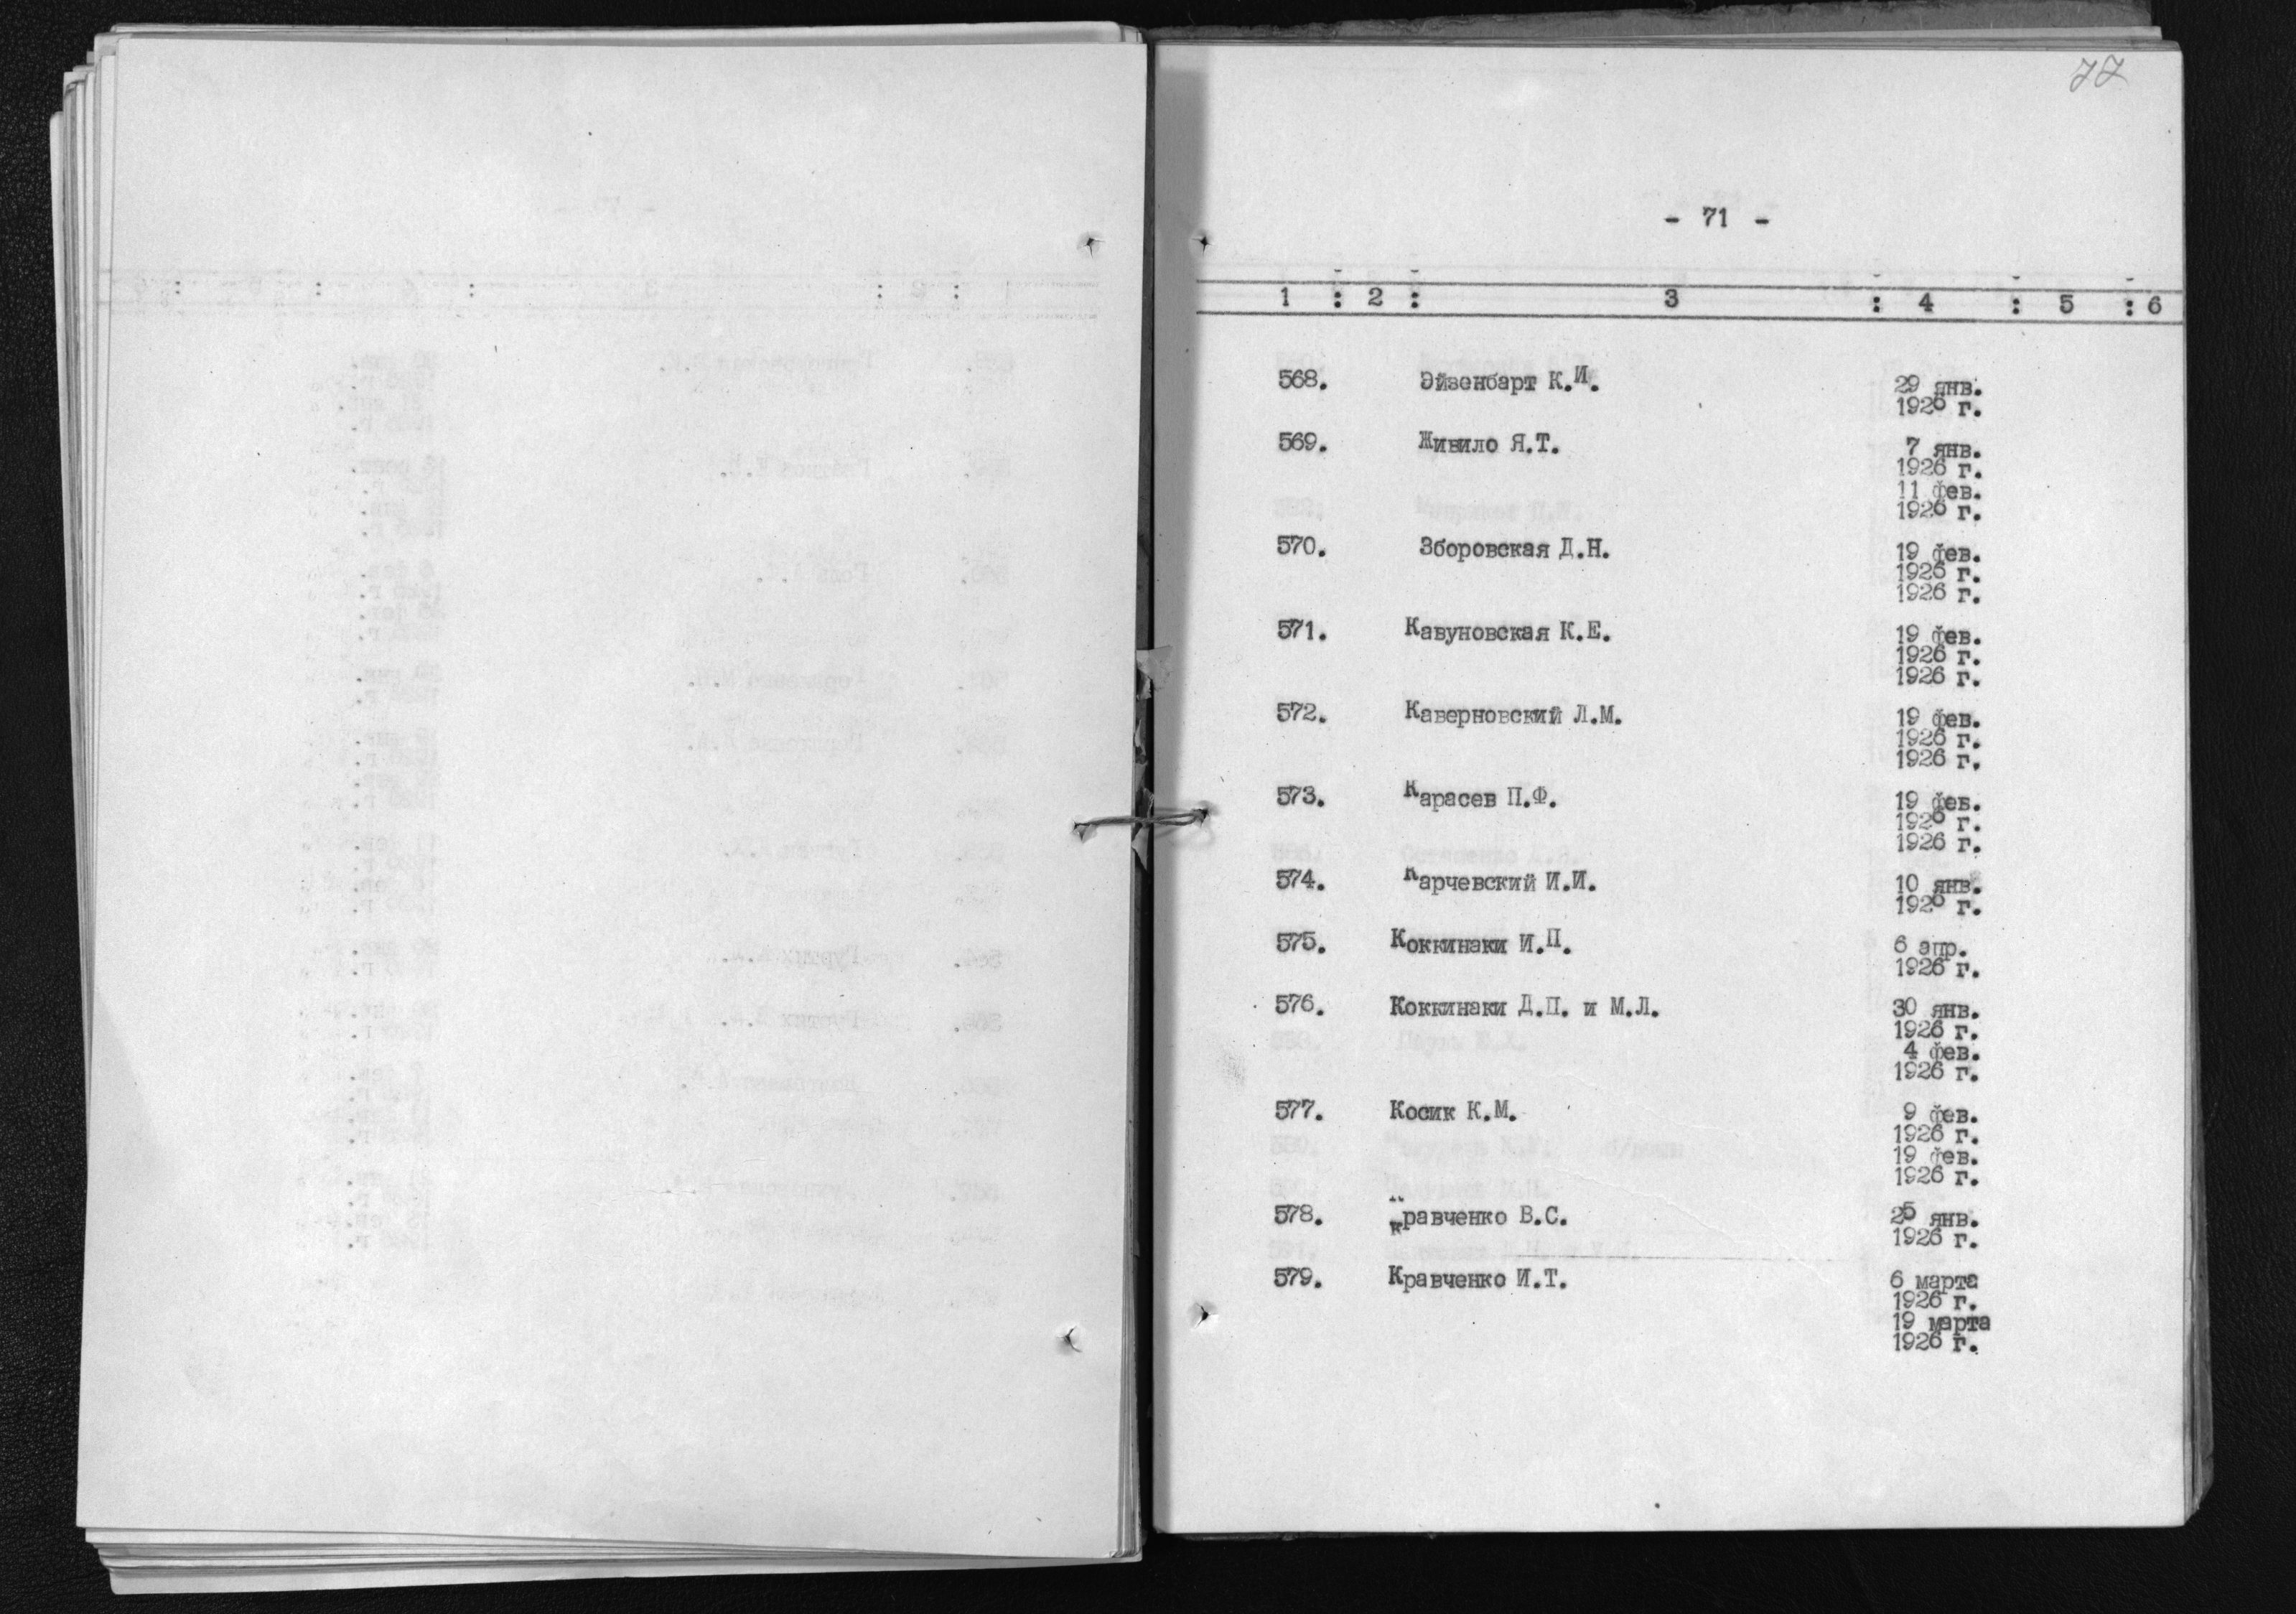 - 71 -
1 : 2 : 3 : 4 : 5 : 6
568. Эйзенбарт К.И. 29 янв.
1926 г.
569. Живило Я.Т. 7 янв.
1926 г.
11 фев.
1926 г.
570. Зборовская Д.Н. 19 фев.
1926 г.
1926 г.
571. Кавуновская К.Е. 19 фев.
1926 г.
1926 г.
572. Каверновский Л.М. 19 фев.
1926 г.
1926 г.
573. Карасев П.Ф. 19 фев.
1926 г.
1926 г.
574. Карчевский И.И. 10 янв.
1926 г.
575. Коккинаки И.П. 6 апр.
1926 г.
576. Коккинаки Д.П. и М.Л. 30 янв.
1926 г.
4 фев.
1926 г.
577. Косик К.М. 9 фев.
1926 г.
19 фев.
1926 г.
578. Кравченко В.С. 25 янв.
1926 г.
579. Кравченко И.Т. 6 марта
1926 г.
19 марта
1926 г.